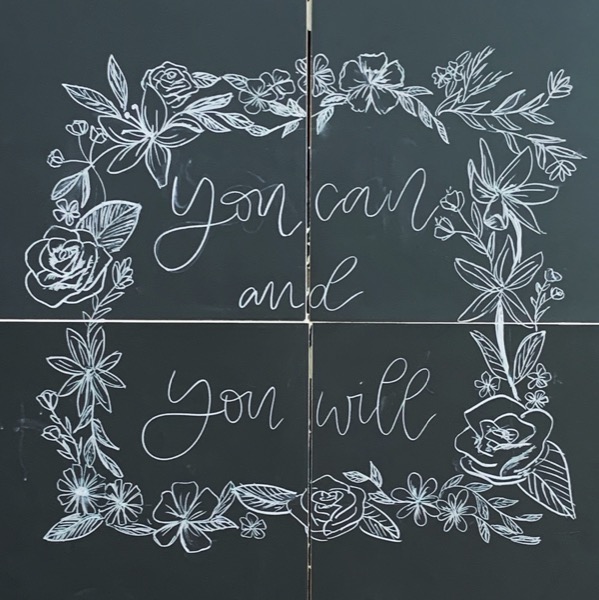 you can
and
you will